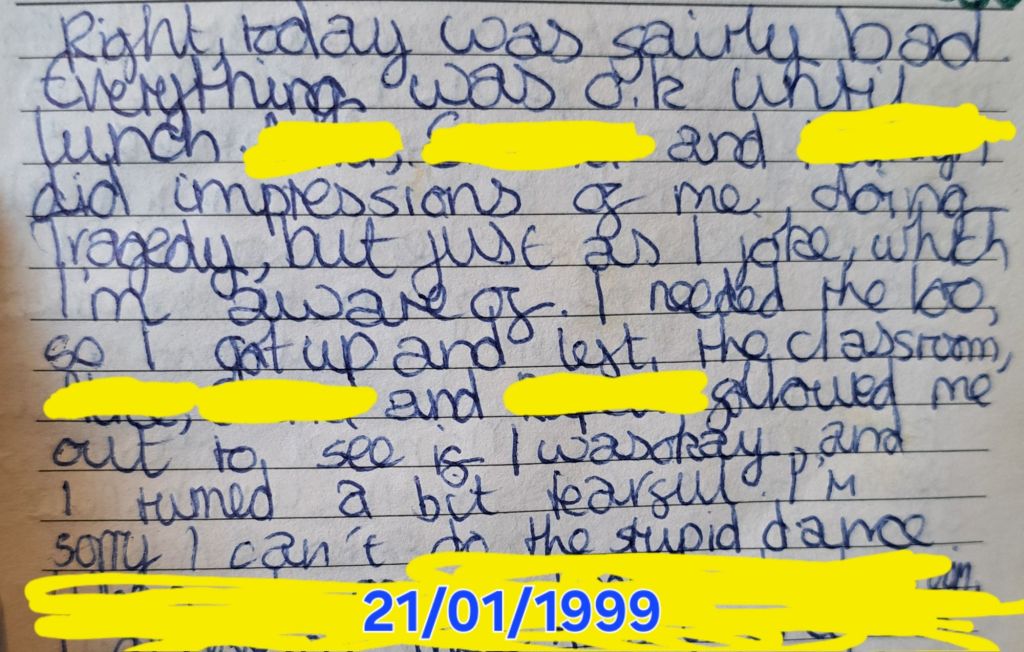 Right, today was fairly bad.
Everything was o.k until
lunch. and
did impressions of me doing
Tragedy, but just as I joke, which
I'm aware of. I needed the loo,
so I got up and left, the classroom,
and followed me
out to, see if I was okay, and
I turned a bit tearful. I'm
sorry I can't do the stupid dance
21/01/1999